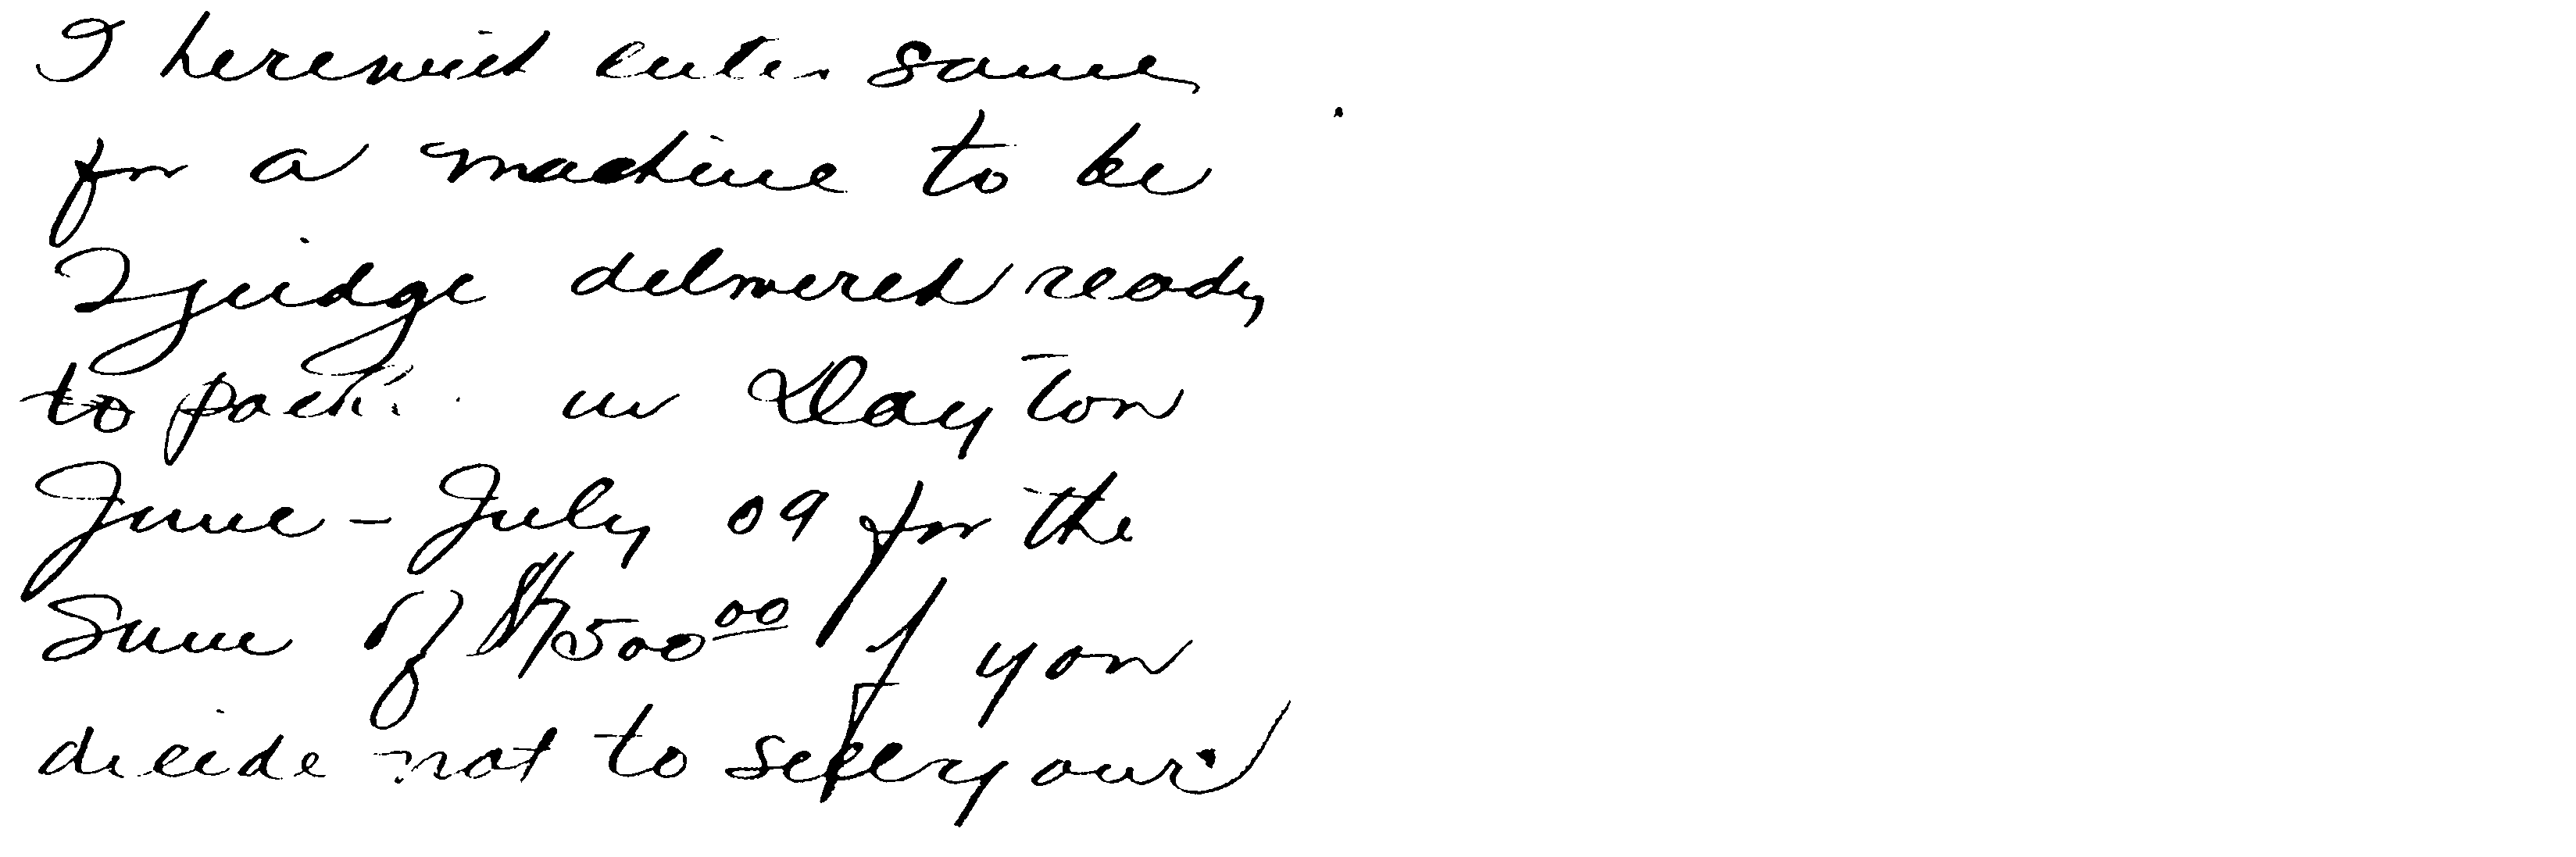 I herewith enter same
for a machine to be
I judge delivered ready
to pack in Dayton
June - July 09 for the
Sum of $7500.00 if you
decide not to sell your